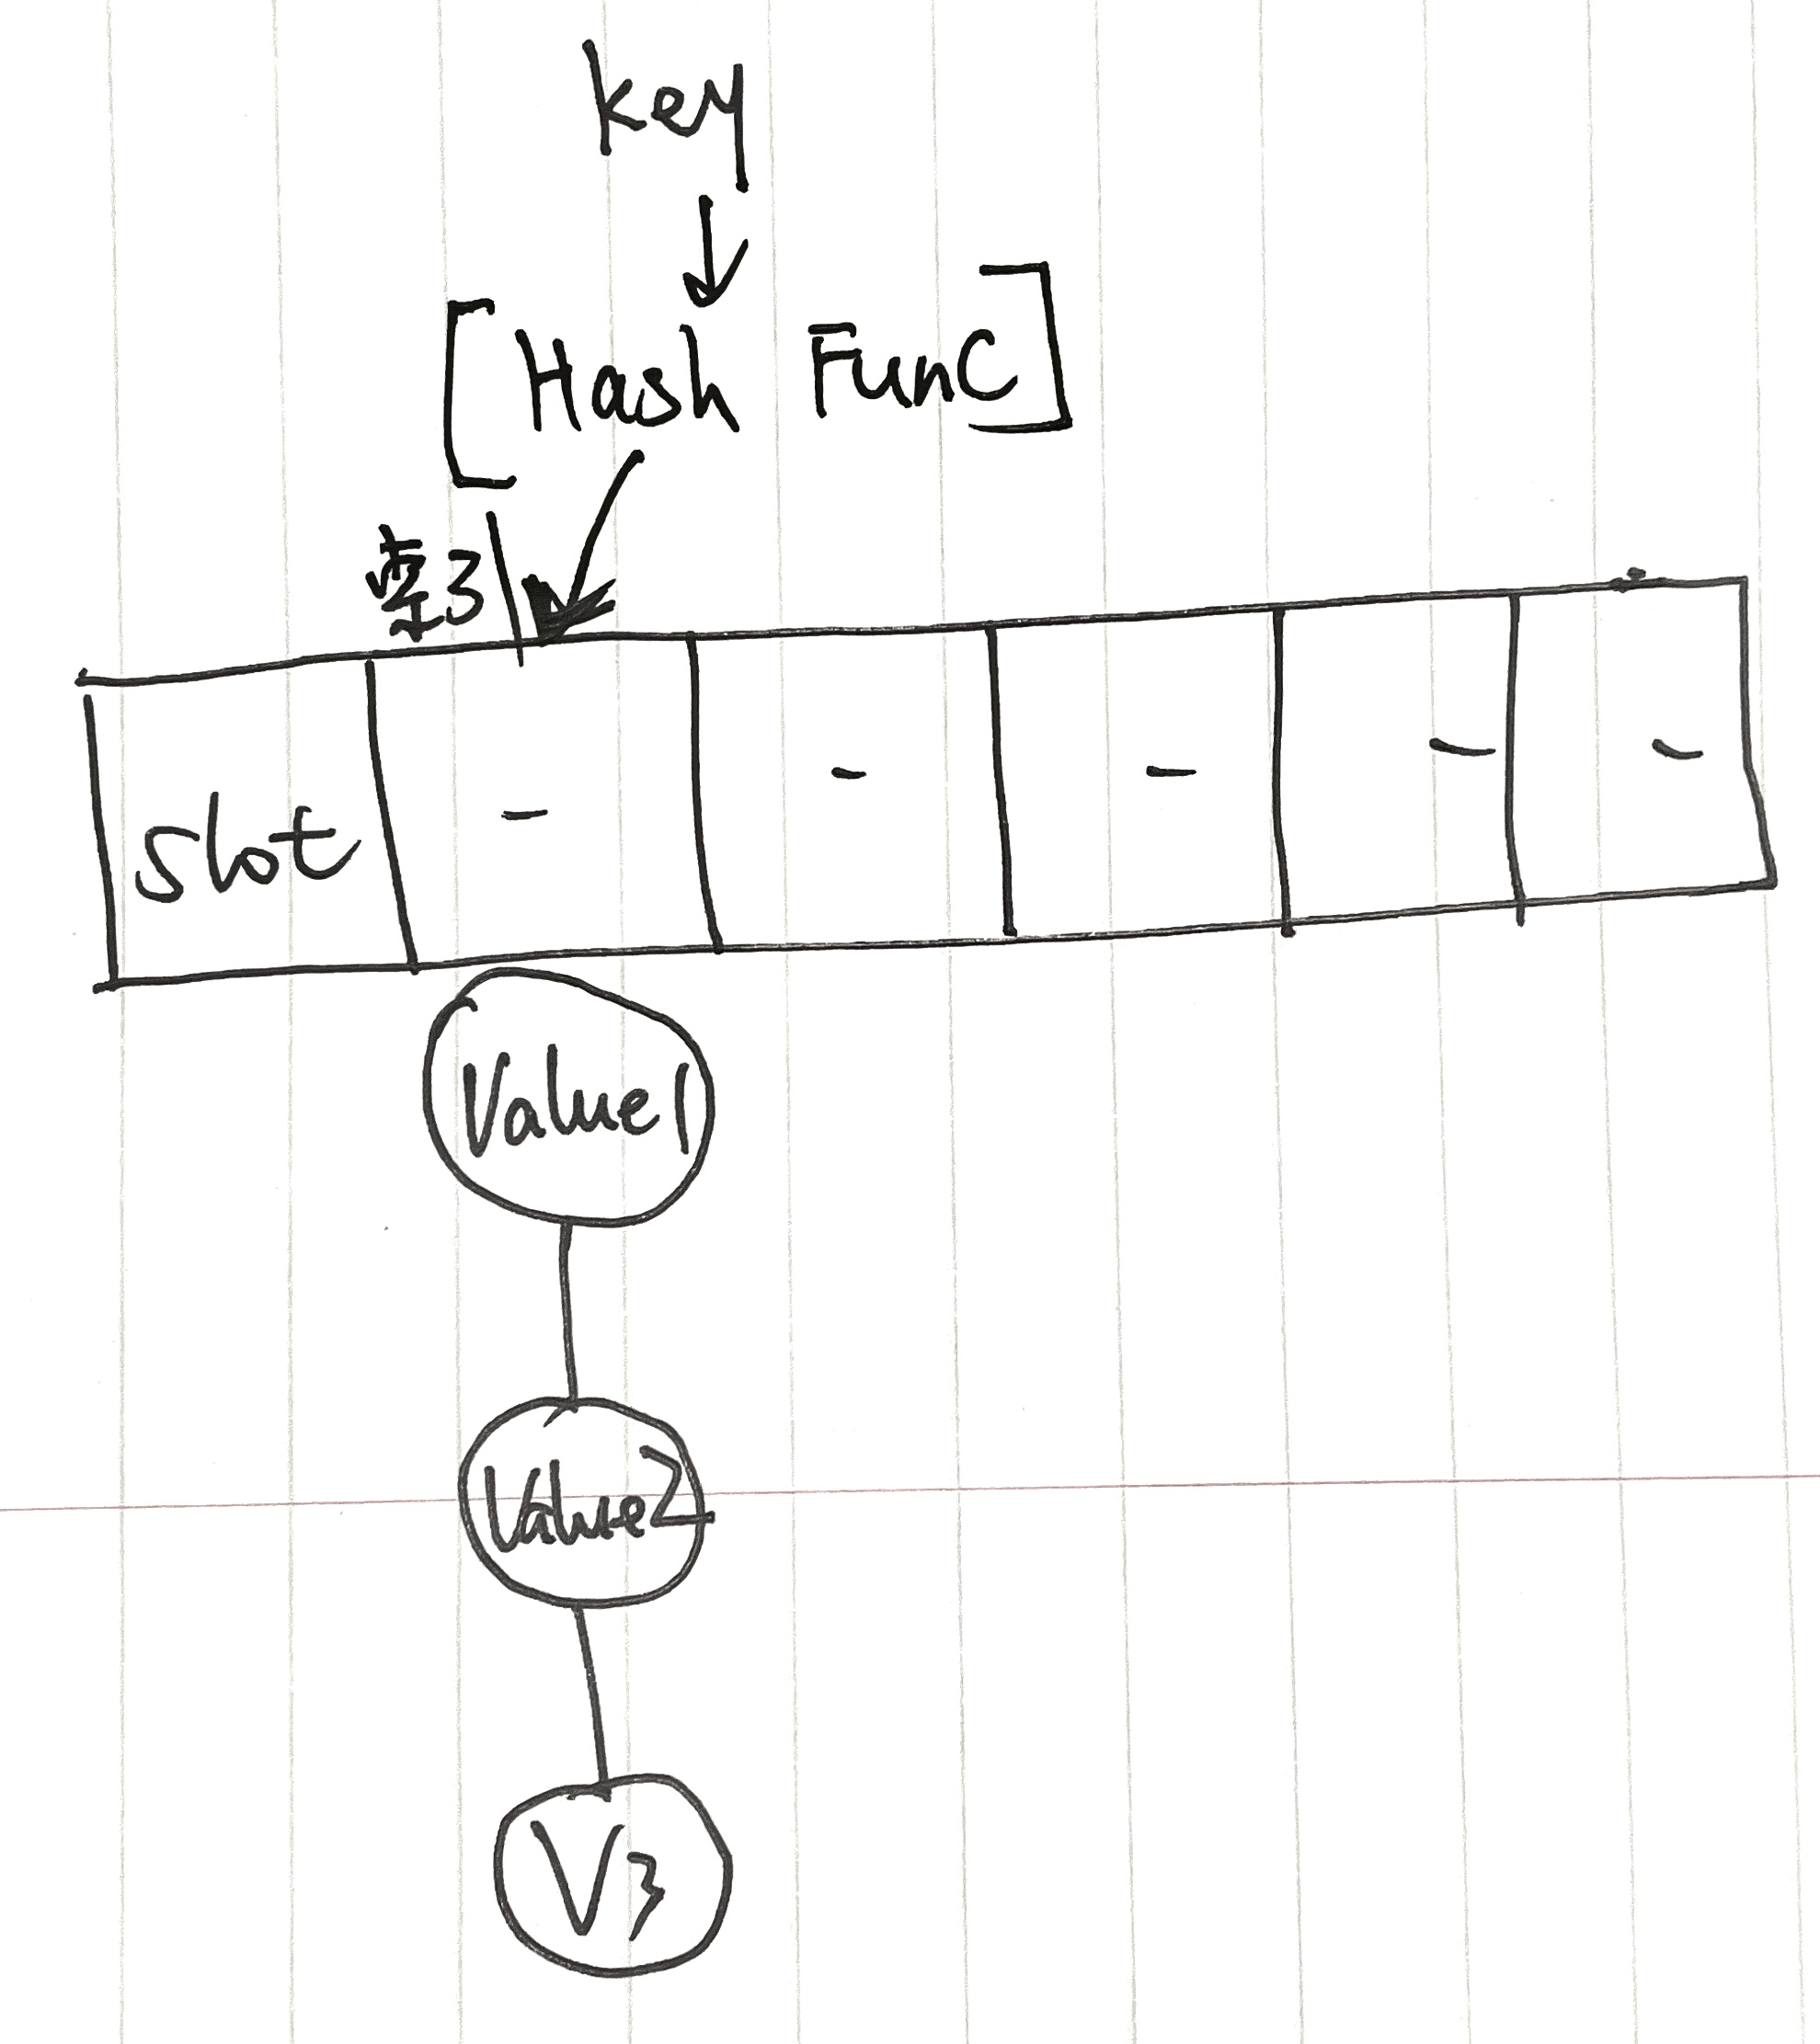 key
[Hash Func]
索引
slot - - - - -
Value1
Value2
V3